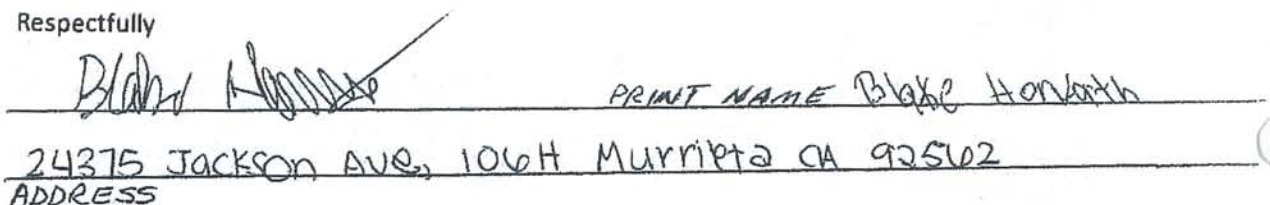 Respectfully
PRINT NAME Blake Horvath
24375 Jackson Ave, 106H Murrieta CA 92562
ADDRESS